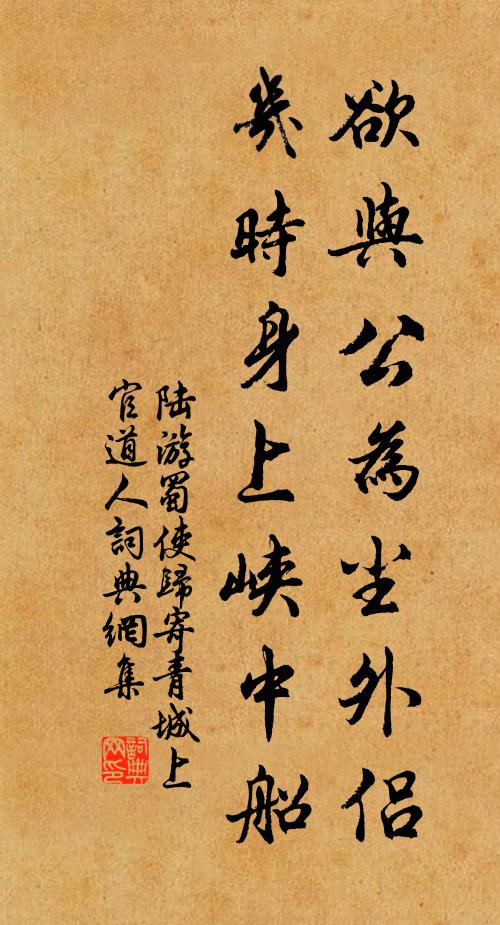 欲與公為尘外侣
幾時身上峽中船
陆游蜀使歸寄青城上
官道人詞典網集
詞典网印